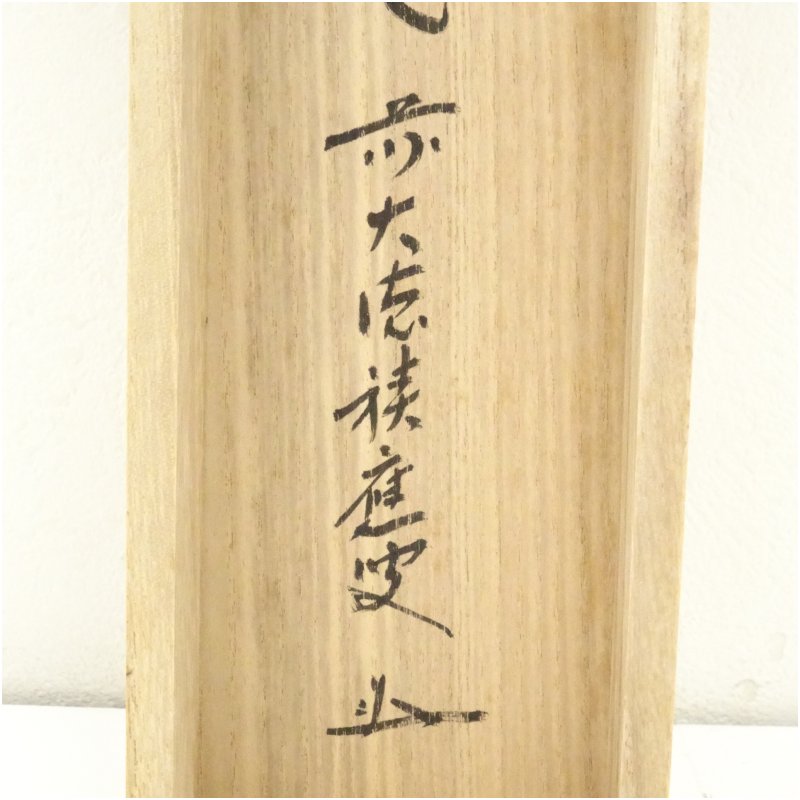 前大徳積應叟